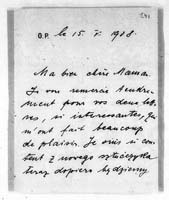 O.P. le 15. V. 1908.
Ma bien chère Maman.
Je vous remercie tendre-
ment pour vos deux let-
res, si interessantes, qui
m'ont fait beaucoup
de plaisir. Je suis si con
tent z nowego
teraz dopiero będziemy